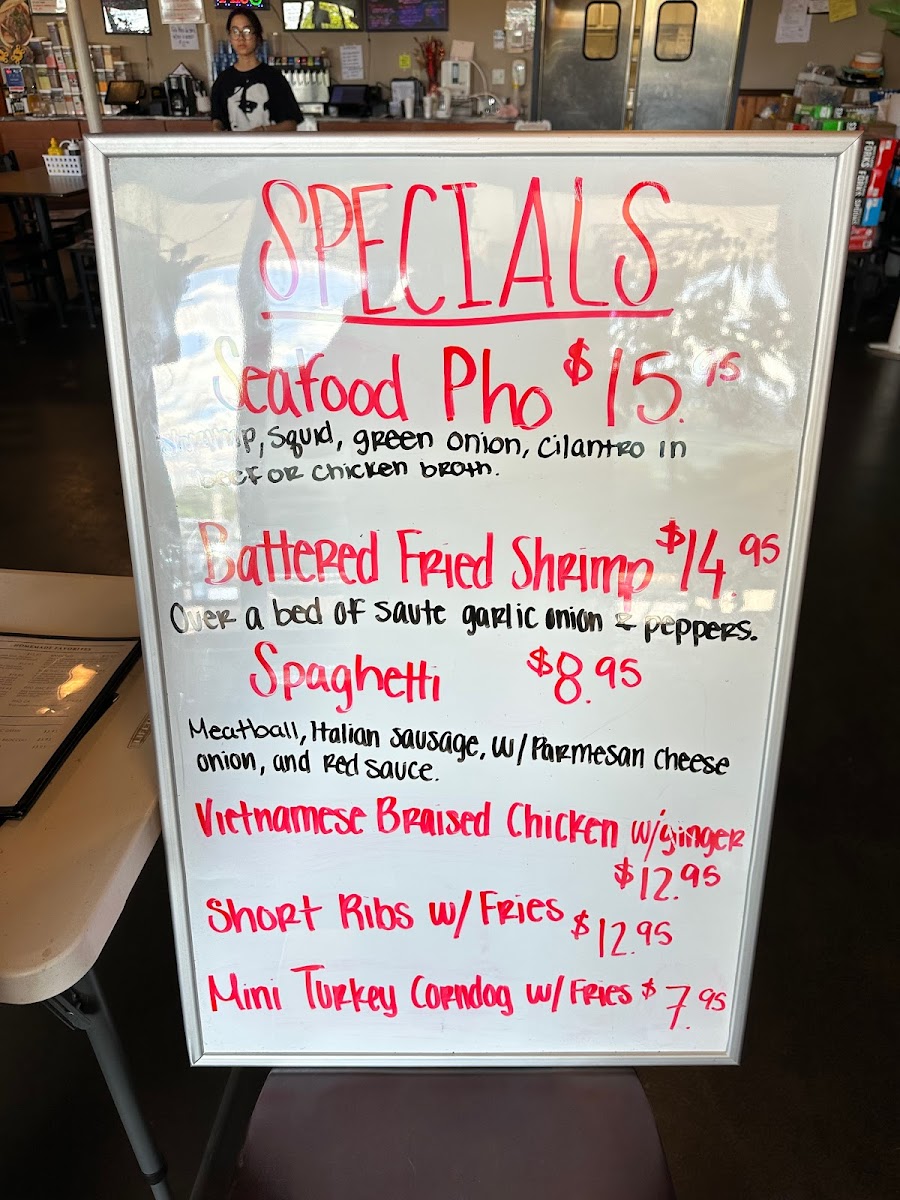 SPECIALS
Seafood Pho $15.15
Shrimp, Squid, green onion, Cilantro in
beef or chicken broth.
Battered Fried Shrimp $14.95
Over a bed of saute garlic onion & peppers.
Spaghetti $8.95
Meatball, Italian sausage, w/ Parmesan Cheese
onion, and Red sauce.
Vietnamese Braised Chicken w/ginger
$12.95
Short Ribs w/ Fries $12.95
Mini Turkey Corndog w/ Fries $7.95
HOMEMADE FAVORITES
FORKS